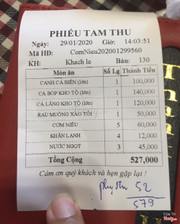 PHIẾU TẠM THU
Ngày: 29/01/2020 Giờ: 14:03:51
Mã HD: ComNieu202001299560
KH: Khach le Bàn: 130
Món ăn Số Lg Thành Tiền
CANH CÁ BIỂN (lớn) 1 100,000
CÁ BỚP KHO TỘ (lớn) 1 140,000
CÁ LĂNG KHO TỘ (lớn) 1 120,000
RAU MUỐNG XÀO TỎI 1 50,000
CƠM NIÊU 5 60,000
KHĂN LẠNH 4 12,000
NƯỚC NGỌT 3 45,000
Tổng Cộng 527,000
Cám ơn quý khách và hẹn gặp lại !
phụ thu 52
579